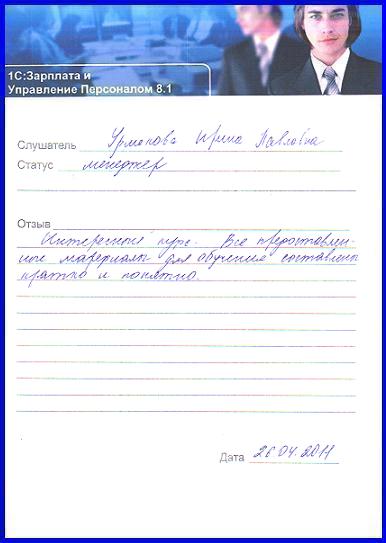 1С:Зарплата и
Управление Персоналом 8.1
Слушатель Урманова Ирина Павловна
Статус менеджер
Отзыв
Интересный курс. Все предоставлен-
ные материалы для обучения составлены
кратко и понятно.
Дата 26.04.2011